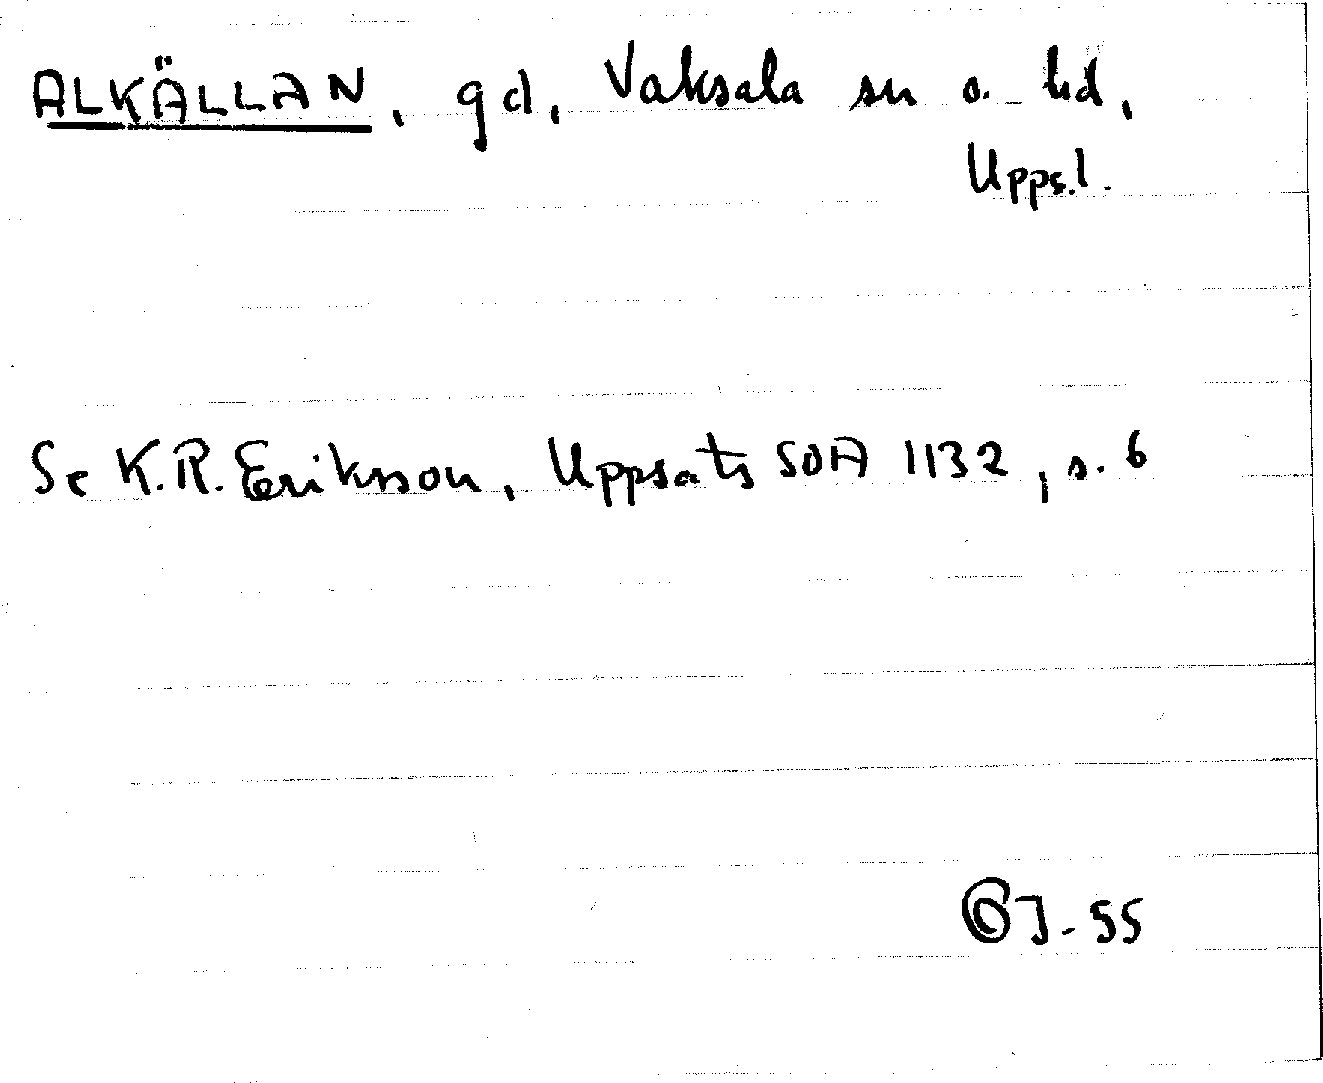 ALKÄLLAN, gd, Vaksala sn o. hd,
Upps.l.
Se K.R. Eriksson, Uppsats SOA 1132, s. 6
GJ-55